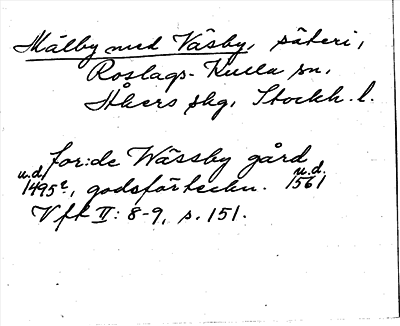 Mälby med Väsby, säteri,
Roslags-Kulla sn,
Åkers skg, Stockh. l.
for:de Wässby gård
u.d. 1495?, godsförteckn. u.d. 1561
Vfk II: 8-9, s. 151.